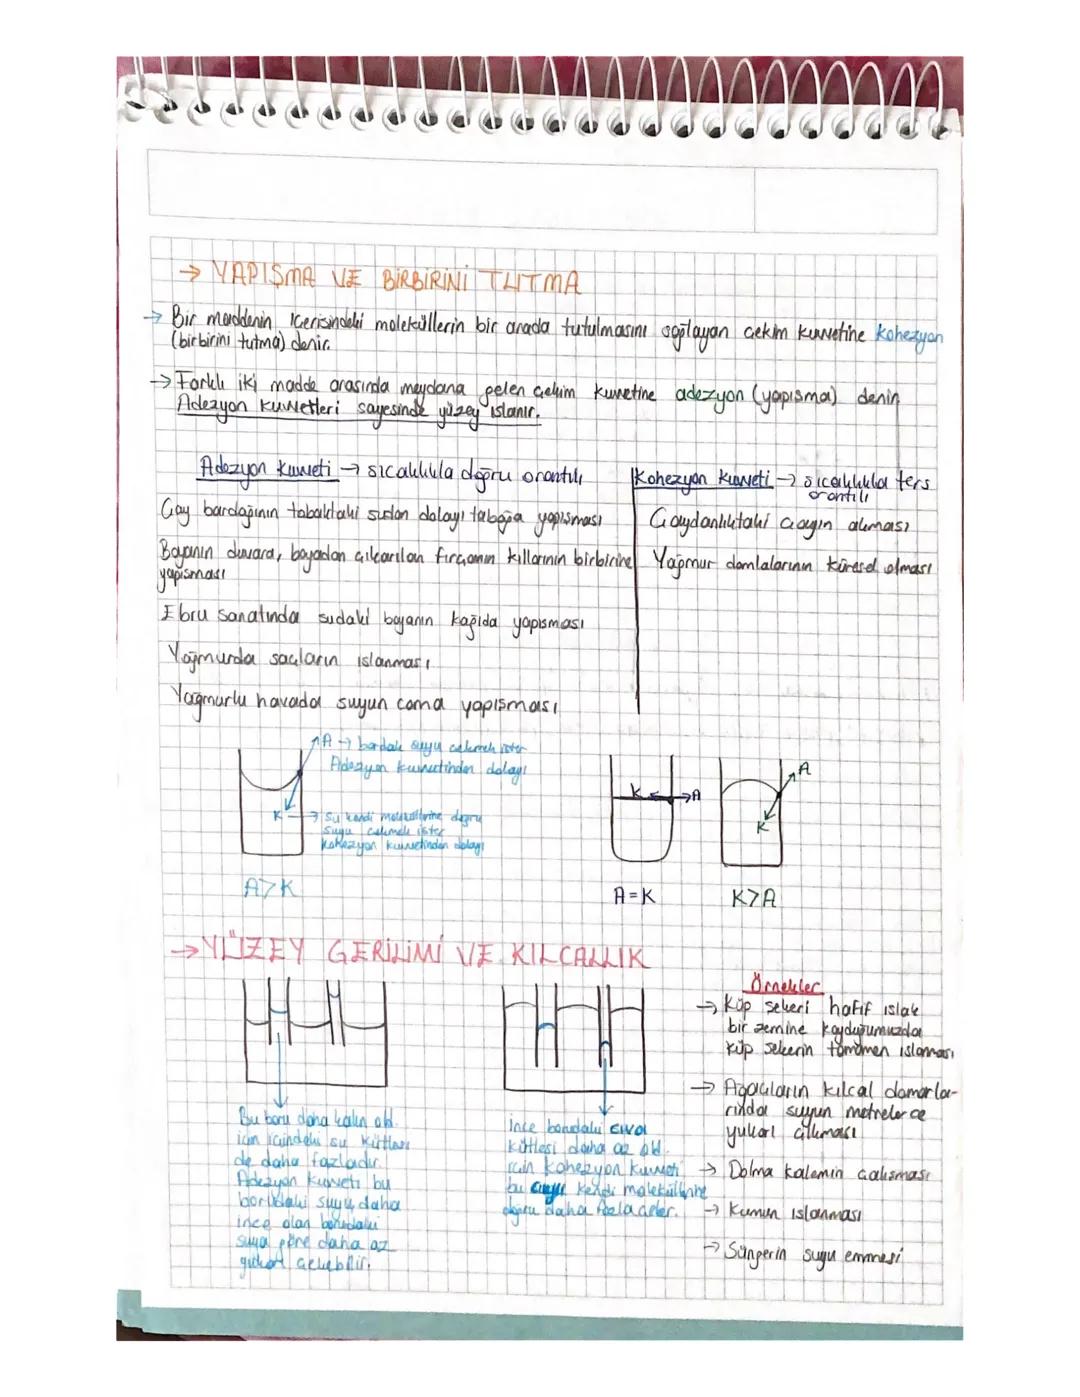 → YAPIŞMA VE BİRBİRİNİ TUTMA
→ Bir maddenin içerisindeki moleküllerin bir arada tutulmasını sağlayan çekim kuvvetine kohezyon
(birbirini tutma) denir.
→ Farklı iki madde arasında meydana gelen çekim kuvvetine adezyon (yapışma) denir.
Adezyon kuvvetleri sayesinde yüzey ıslanır.
Adezyon kuvveti → sıcaklıkla doğru orantılı
Çay bardağının tabaktaki sudan dolayı tabağa yapışması
Boyanın duvara, boyadan çıkarılan fırçanın kıllarının birbirine
yapışması
Ebru sanatında sudaki boyanın kağıda yapışması
Yağmurda saçların ıslanması
Yağmurlu havada suyun cama yapışması
Kohezyon kuvveti → sıcaklıkla ters
orantılı
Çaydanlıktaki çayın akması
Yağmur damlalarının küresel olması
A → bardak suyu çekmek ister
Adezyon kuvvetinden dolayı
K → Su kendi moleküllerine doğru
suyu çekmek ister
kohezyon kuvvetinden dolayı
A>K
K A
A=K
A
K
K>A
→ YÜZEY GERİLİMİ VE KILCALLIK
Bu boru daha kalın old.
için içindeki su kütlesi
de daha fazladır.
Adezyon kuvveti bu
borudaki suyu daha
ince olan borudaki
suya göre daha az
yukarı çekebilir.
İnce borudaki cıva
kütlesi daha az old.
için kohezyon kuvveti
bu kendi moleküllerine
doğru daha fazla çeker.
Örnekler
→ Küp şekeri hafif ıslak
bir zemine koyduğumuzda
küp şekerin tamamen ıslanması
→ Ağaçların kılcal damarla-
rında suyun metrelerce
yukarı çıkması
→ Dolma kalemin çalışması
→ Kumun ıslanması
→ Süngerin suyu emmesi